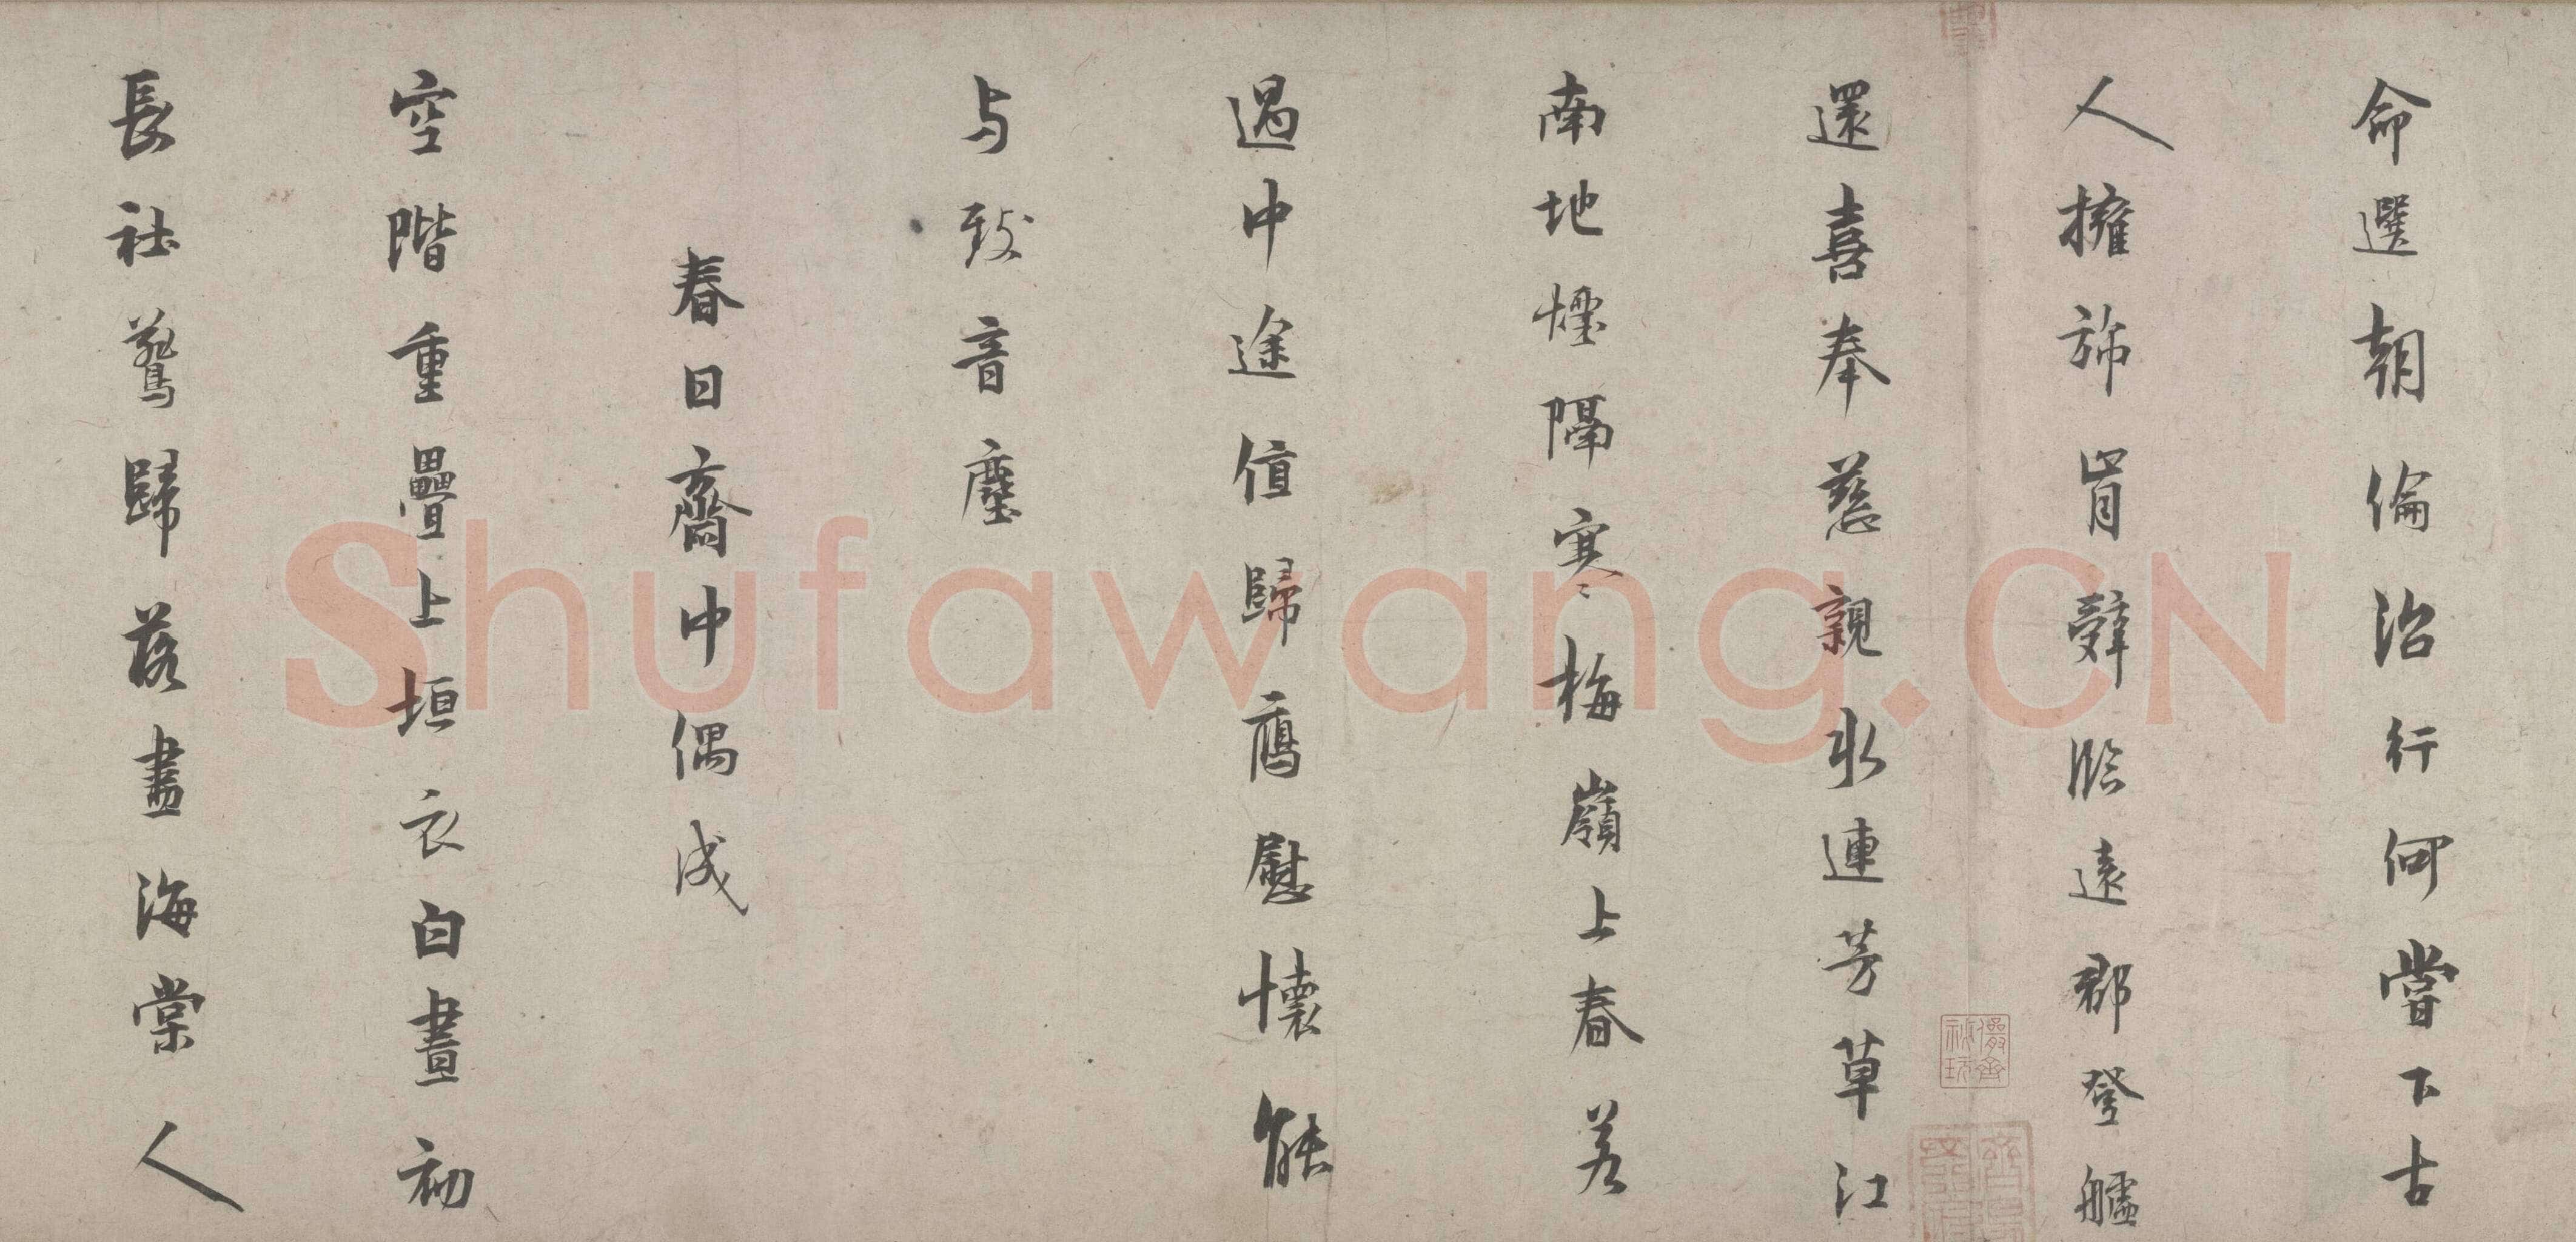 命選朝倫治行何當下古
人擁旆肯辤臨遠郡登艫
還喜奉慈親水連芳草江
南地煙隔寒梅嶺上春若
過中途值歸鴈慰懷能
与致音塵
春日齋中偶成
空階重疊上垣衣白晝初
長社鷰歸落盡海棠人
儼齋秘玩
Shufawang.CN